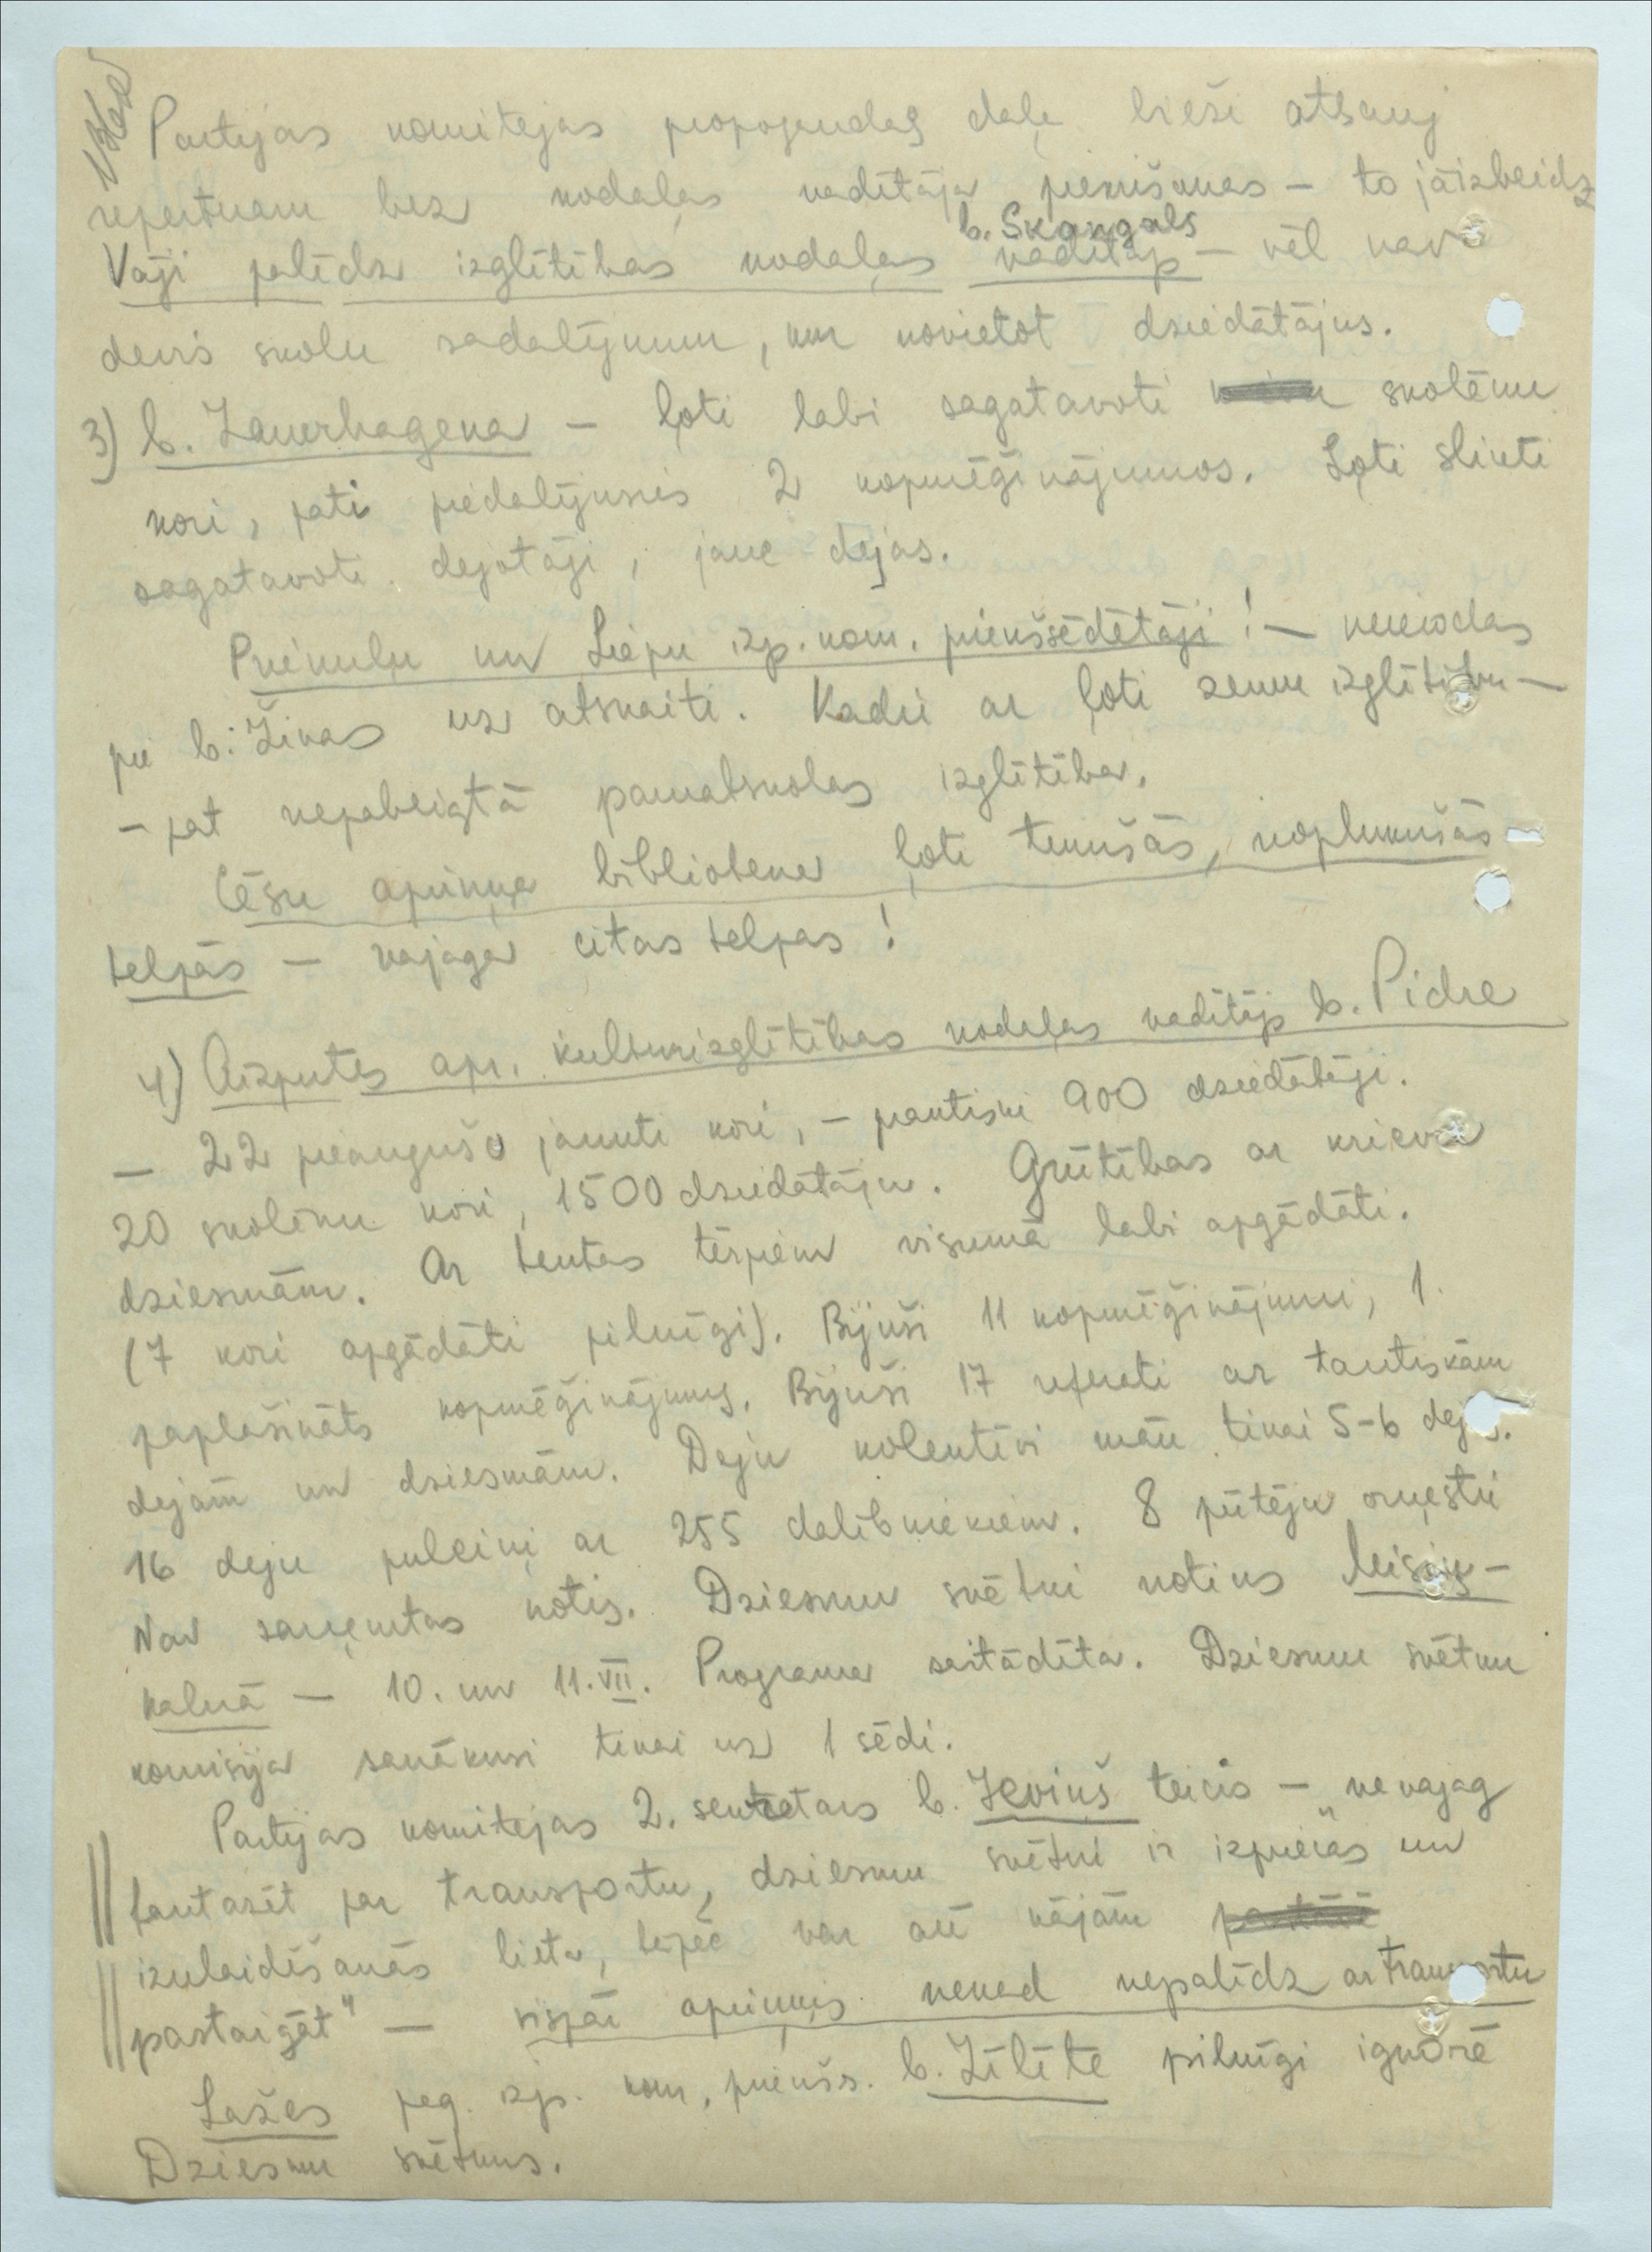 Partijas komitejas propogandas daļa bieži atsauj
repertuaru bez nodaļas vadītāja piekrišanas – to jāizbeidz
b. Skangals
Vāji palīdz izglītības nodaļas vadītājs – vēl nav
devis skolu sadalījumu, kur novietot dziedātājus.
3) b. Zauerhagena – ļoti labi sagatavoti skolēnu
kori, pati piedalījusies 2 kopmēģinājumos. Ļoti slikti
sagatavoti dejotāji, jauc dejas.
Priekuļu un Liepu izp. kom. priekšsēdētāji! – neierodas
pie b. Žinas uz atskaiti. Kadri ar ļoti zemu izglītību –
– pat nepabeigtā pamatskolas izglītība.
Cēsu apriņķa bibliotēka ļoti tumšās, noplukušās
telpās – vajaga citas telpas!
4) Aizputes apr. kulturizglītības nodaļas vadītājs b. Pidre
– 22 pieaugušo jaukti kori, – pavisam 900 dziedātāji.
20 skolēnu kori, 1500 dziedātāju. Grūtības ar krievu
dziesmām. Ar tautas tērpiem visumā labi apgādāti.
(7 kori apgādāti pilnīgi). Bijuši 11 kopmēģinājumi, 1
paplašināts kopmēģinājums. Bijuši 17 referati ar tautiskām
dejām un dziesmām. Deju kolektīvi māc tikai 5-6 dejas.
16 deju pulciņi ar 255 dalībniekiem. 8 pūtēju orķestri
Nav saņemtas notis. Dziesmu svētki notiks Misiņ-
kalnā – 10. un 11. VII. Programa sastādīta. Dziesmu svētku
komisija sanākusi tikai uz 1 sēdi.
Partijas komitejas 2. sekretars b. Ieviņš teicis – „nevajag
fantazēt par transportu, dziesmu svētki ir izpriecas un
izklaidēšanās lieta, tapēc var arī kājām
pastaigāt" – vispār apriņķis nekad nepalīdz ar transportu
Lažas pag. izp. kom. priekšs. b. Zīlīte pilnīgi ignorē
Dziesmu svētkus.